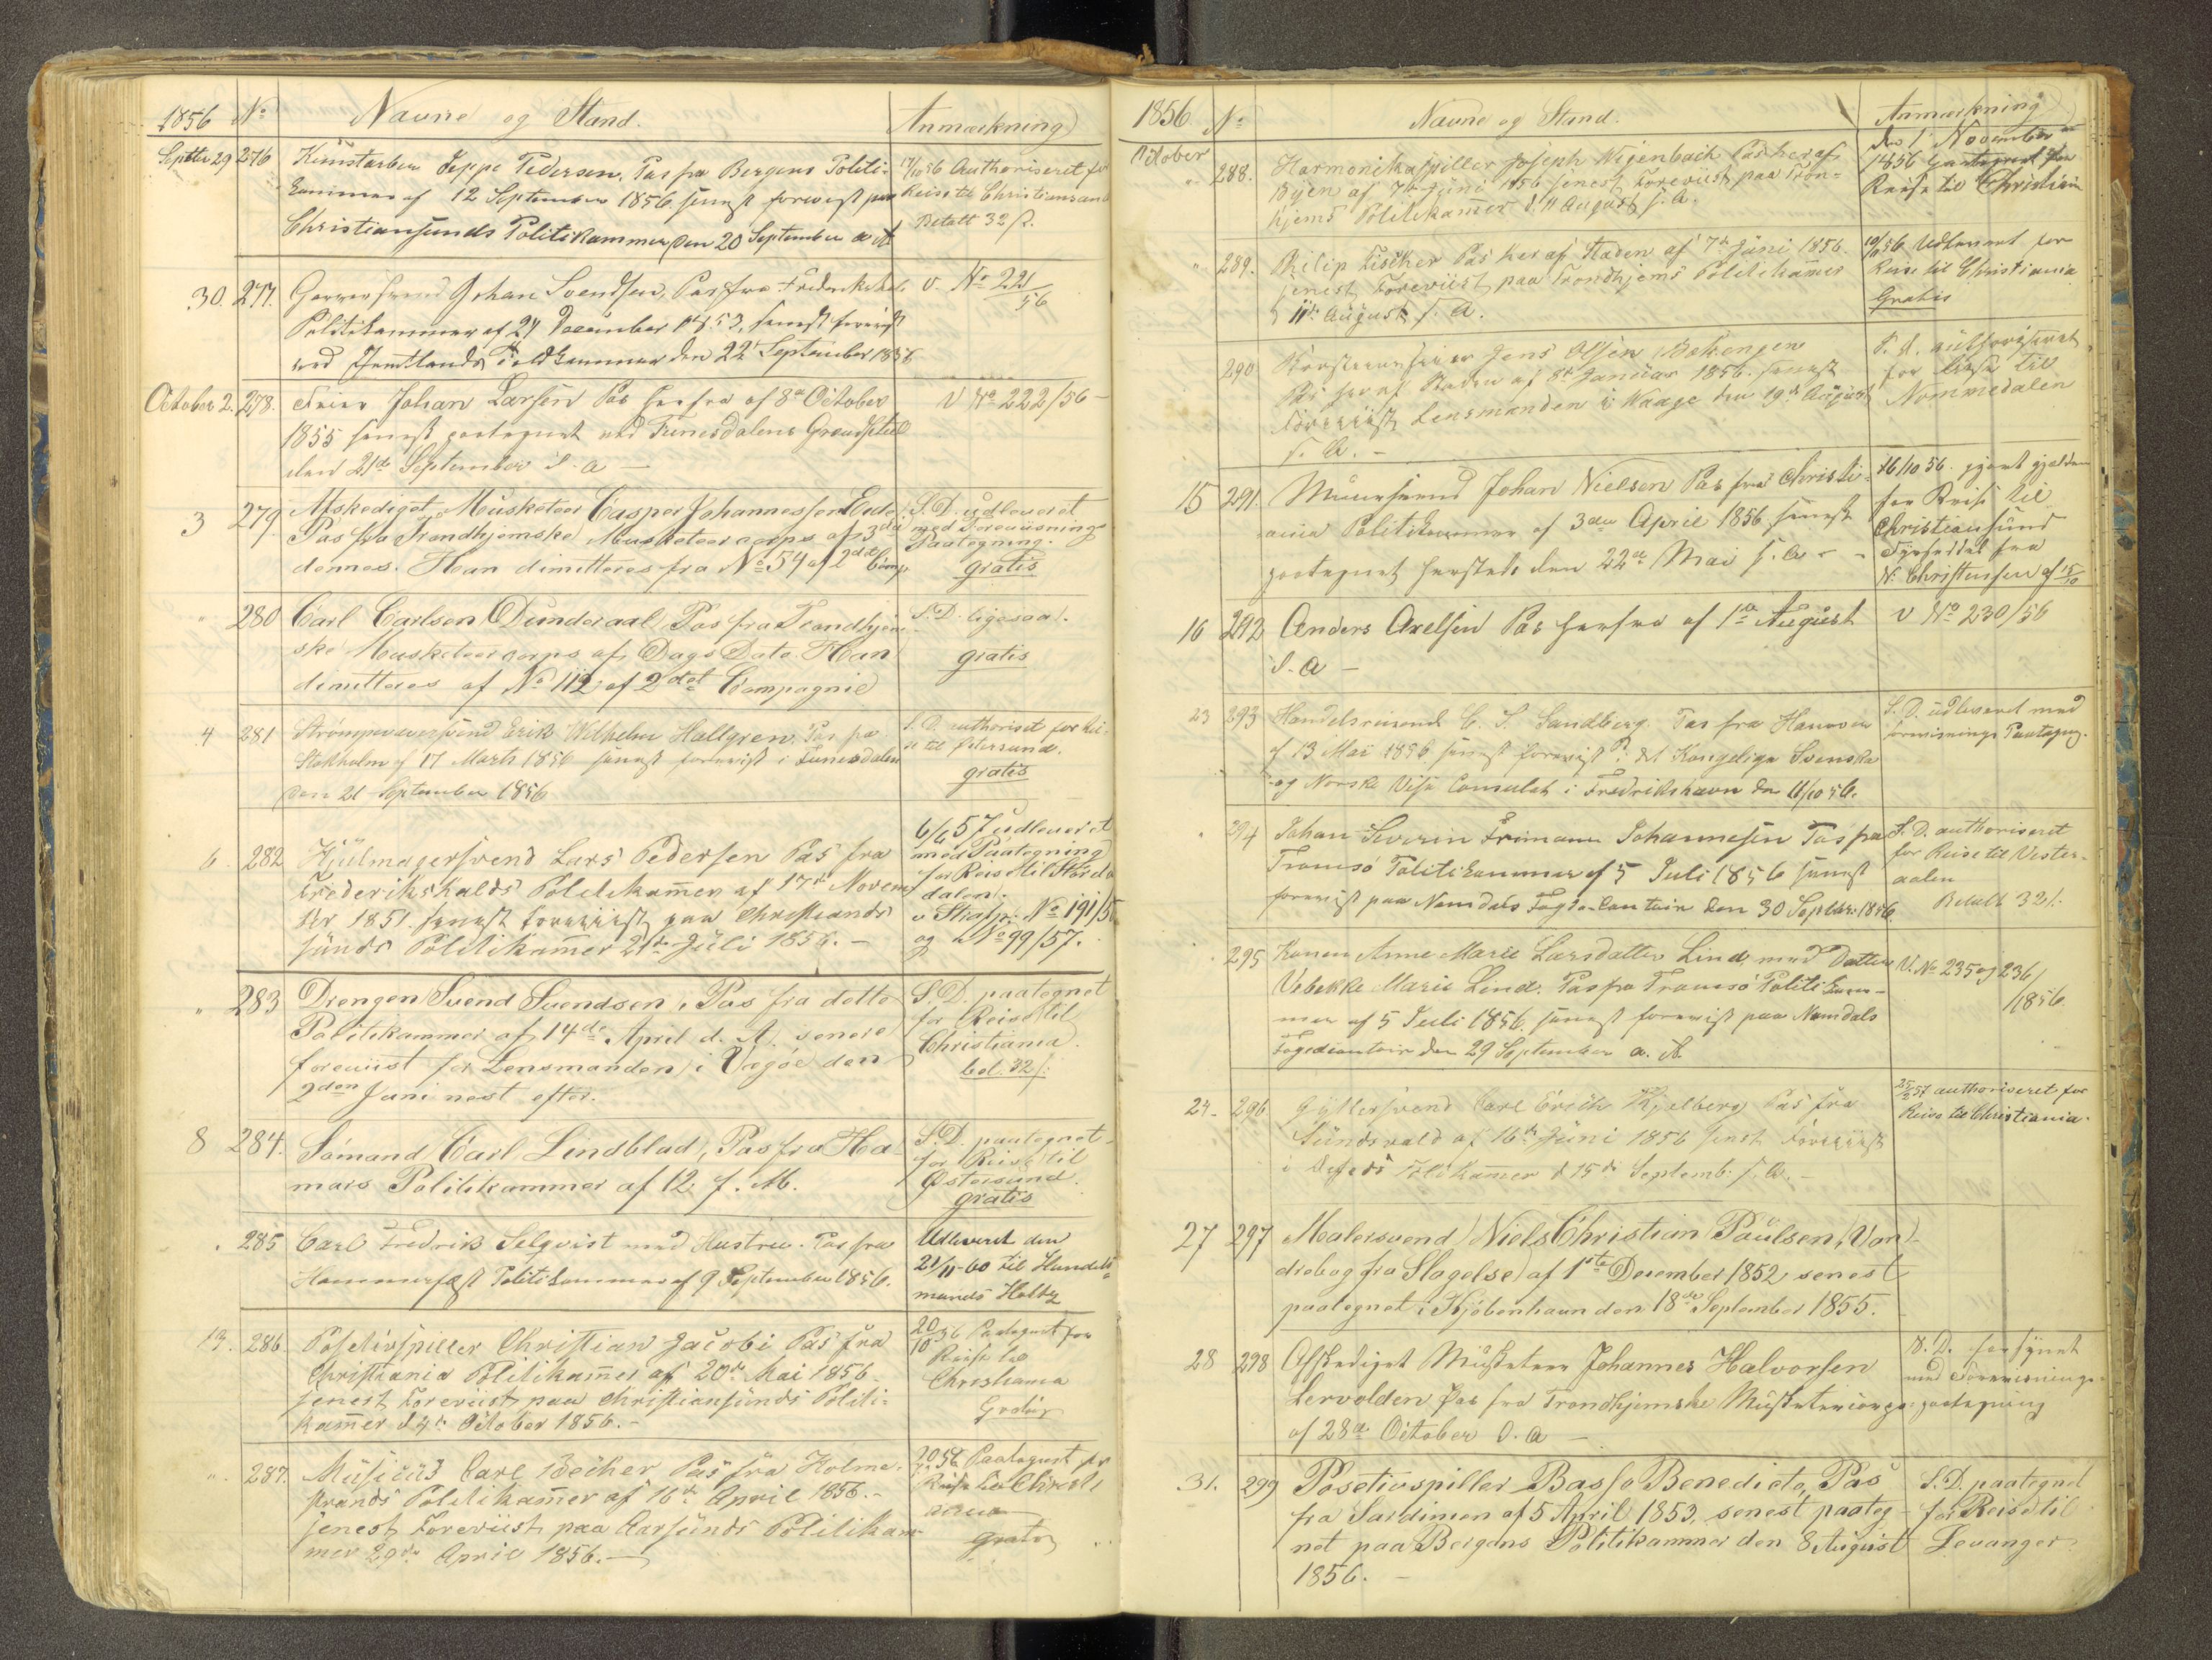 1856 No Navne og Stand. Anmærkning
Septbr 29 276 Kunstarbeider Jeppe Pedersen, Pas fra Bergens Politi-
kammer af 12 September 1856 senest forevist paa
Christiansunds Politikammer den 20 September a. A.
17/10 56 Authoriseret for
Reise til Christiansand
Betalt 32 s.
30. 277. Garversvend Johan Svendsen, Pas fra Frederikshalds
Politikammer af 27 December 1853, senest forevist
ved Jemtlands den 22de September 1856
v. No 221/56
October 2. 278. Feier Johan Larsen Pas herfra af 8de October
1855 senest paategnet ved Funesdalens Grændsetold
den 21de September d. a. –
v No 222/56 –
3 279. Afskediget Musketeer Casper Johannessen
Pas fra Trondhjemske Musketeercorps af 3die
dennes. Han dimitteres fra No 54 af 2det Comp.
S. D. udleveret
med Forevisnings
Paategning.
gratis
" 280 Carl Carlsen Dunderaal, Pas fra Trondhjem-
ske Musketeercorps af Dags Dato. Han
dimitteres af No 112 af 2det Compagnie
S. D. ligesaa.
gratis
4 281 Strømpevæversvend Erik Wilhelm Hallgren. Pas fra
Stokholm af 17 Marts 1856 senest forevist i Funesdalen
den 21 September 1856
S. D. authoriset for Rei-
se til Østersund.
gratis
6. 282 Hjulmagersvend Lars Pedersen Pas fra
Frederikshalds Politikammer af 17de Novem-
ber 1851. senest foreviist paa Christians-
sunds Politikammer 21de Juli 1856. –
6/6 57 udleveret
med Paategning
for Reise til Størda-
dalen.
v Strafpr. No 191/5
og No 99/57.
" 283 Drengen Svend Svendsen, Pas fra dette
Politikammer af 14de April d. A. senere
foreviist for Lensmanden i Vægøe den
2den Juni nest efter.
S. D. paategnet
for Reise til
Christiania.
bet. 32 s.
8 284. Sømand Carl Lindblad, Pas fra Ha-
mars Politikammer af 12 f. M.
S. D. paategnet
for Reise til
Østersund.
gratis
" 285 Carl Fredrik Selqvist med Hustru. Pas fra
Hammerfæst Politikammer af 9 September 1856.
Udleveret den
21/11-60 til Handels-
mands
13. 286. Positivspiller Christian Jacobi Pas fra
Christiania Politikammer af 20de Mai 1856
senest Foreviist paa Christiansunds Politi-
kammer d 4de October 1856. –
20/10 56 Paategnet for
Reise til
Christiania
Gratis
" 287. Musicus Carl Becker Pas fra Holme-
strands Politikammer af 16de April 1856. –
senest Foreviist paa Aarsunds Politikam-
mer 29de April 1856. –
20/10 56 Paategnet for
Reise til Christi-
ania
gratis
1856 No Navne og Stand. Anmærkning
October " 288. Harmonikaspiller Joseph Pas her af
Byen af 7de Juni 1856 senest Foreviist paa Tron-
hjems Politikammer d. 11 August s. A.
den 1 November
1856 paategnet for
Reise til Christiania
" 289. Philip Fischer Pas her af Staden af 7de Juni 1856.
senest Foreviist paa Trondhjems Politikammer
d 11te August s. A.
10/56 Udleveret for
Reise til Christiania
Gratis
290 Jens Olsen
Pas her af Staden af 8de Januar 1856. senest
Foreviist Lensmanden i Waage den 19de August
s. A. –
S. D. authoriseret
for Reise til
Nommedalen
15 291. Muursvend Johan Nielsen Pas fra Christi-
ania Politikammer af 3die April 1856 senest
paategnet hersteds den 22de Mai s. a –
16/10 56. gjort gjelden
for Reise til
Christiansund
fra
N. Christensen af 15/10
16 292 Anders Axelsen Pas herfra af 1ste August
d. a –
v No 230/56
23 293 Handelsreisende C. S. Sandberg. Pas fra Hannover
af 13 Mai 1856 senest forevist det Kongelige Svenske
og Norske Vise Consulat i Fredrikshavn den 11/10 56.
S. D. udleveret med
forevisnings Paategng.
" 294 Johan Severin Frimann Johannesen Pas fra
Tromsø Politikammer af 5 Juli 1856 senest
forevist paa Namdals Fogde-Contoir den 30 Septbr. 1856.
S. D. authoriseret
for Reise til Vester-
aalen
Betalt 32 s.
" 295 Konen Anne Marie Larsdatter Lind med Datter
Vebekke Marie Lind. Pas fra Tromsø Politikam-
mer af 5 Juli 1856 senest forevist paa Namdals
Fogdecontoir den 29 September a. A.
V. No 235 og 236/
1856.
24. 296 Gjørtlersvend Carl Erich Kjelberg Pas fra
Sundsvald af 16de Juni 1856 senst Foreviist
i Politikammer d 15de Septemb. s. a. –
25/2 57 authoriseret for
Reise til Christiania.
27 297 Malersvend Niels Christian Paulsen, Van-
drebog fra Slagelse af 1ste December 1852, senest
paategnet i Kjöbenhavn den 18de September 1855.
28 298 Afskediget Musketeer Johannes Halvorsen
Lervolden Pas fra Trondhjemske Musketeercorps
af 28de October d. a –
S. D. forsynet
med Forevisnings-
paategning
31. 299 Posetivspiller Basso Benedicto, Pas
fra Sardinien af 5 April 1853, senest paateg-
net paa Bergens Politikammer den 8 August
1856. –
S. D. paategnet
for Reise til
Levanger